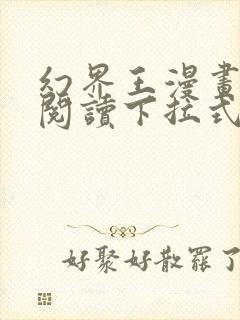 幻界王漫畫
閱讀下拉式
好聚好散罷了